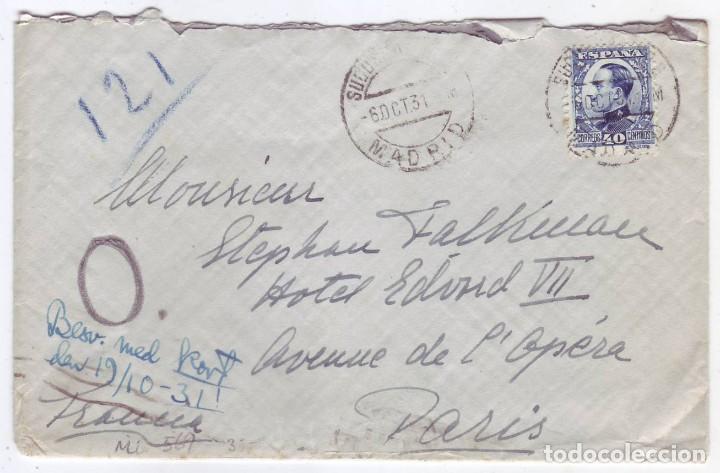 121
SUCURSAL
-6.OCT.31 M
MADRID
ESPAÑA
OCT.31 M
CORREOS 40 CENTIMOS
Monsieur
Stephan Falkman
Hotel Edvord VII
Avenue de l'Opéra
Paris
O.
Besv. med kort
den 19/10-31
Francia
Mi 567 3-
todocoleccion.net